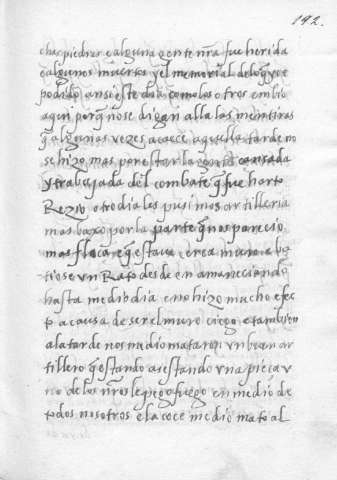 192.
chas piedras e alguna gente nra fue herida
e algunos muertos y el memorial de lo q yo e
podido ansi este dia como los otros embio
aqui porq no se digan alla las mentiras
q algunas vezes acaece aquella tarde no
se hizo mas por estar la gente cansada
y trabajada del combate q fue harto
Rezio otro dia les pusimos artilleria
mas baxo por la parte q nos parecio
mas flaca e q estava cerca muro a ba
tiose un Rato desde en amaneciendo
hasta mediodia e no hizo mucho efec
to a causa de ser el muro ciego e tambien
a la tarde nos medio mataron un buen ar
tillero q estando asestando una pieca v
no de los nros le pego fuego en medio de
todos nosotros e la coce medio mato al